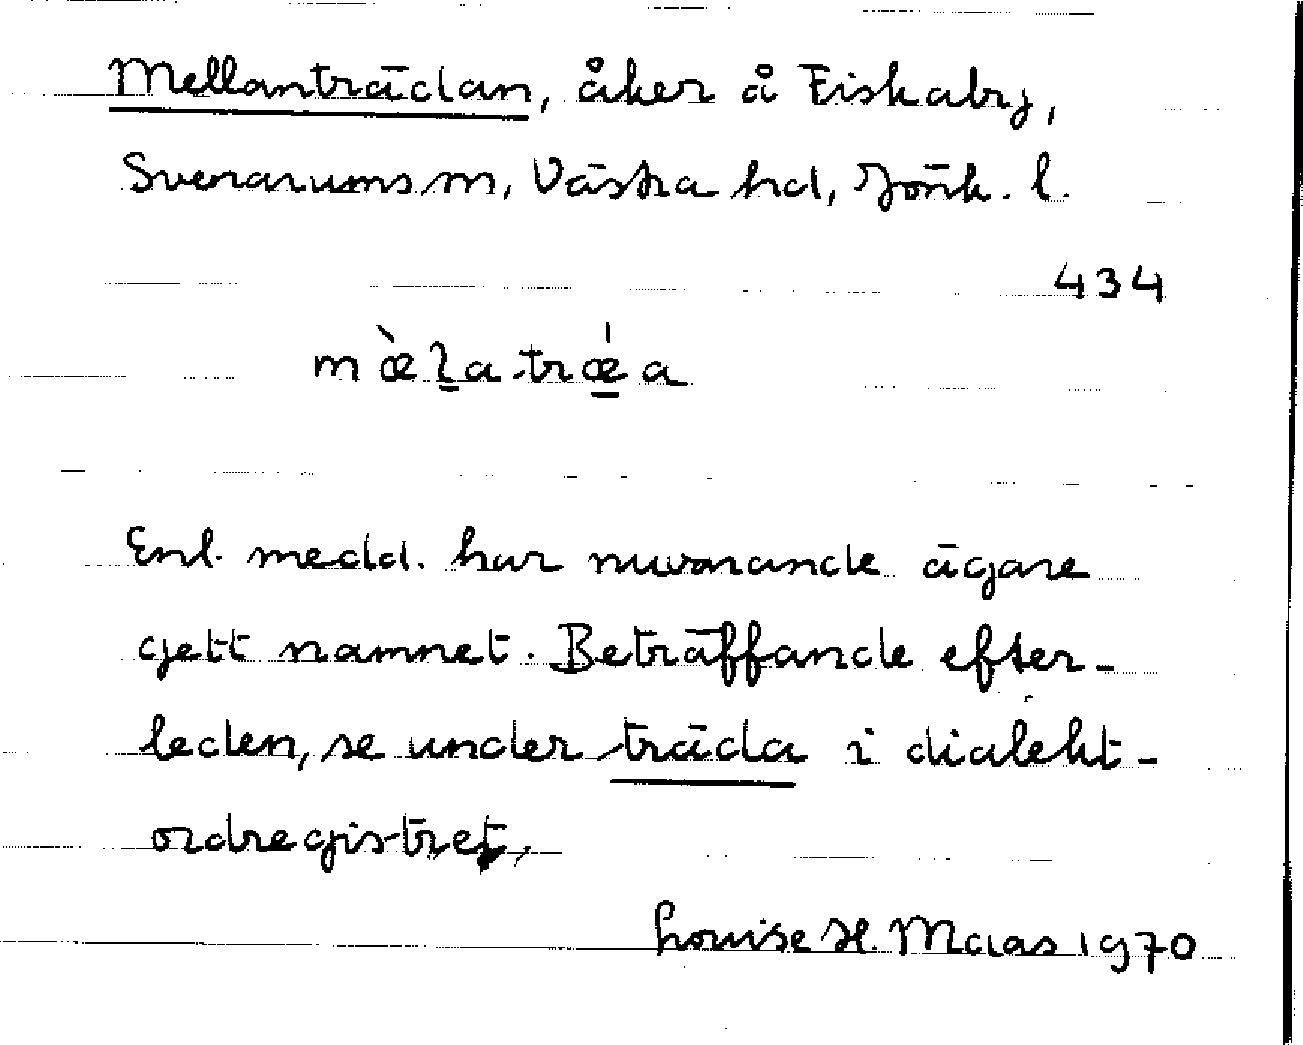 Mellanträdan, åker å Fiskaby,
Svenarums sn, Västra hd, Jönk. l.
434
mæ̀l̠atrǽ̠a
Enl. medd. har nuvarande ägare
gett namnet. Beträffande efter-
leden, se under träda i dialekt-
ordregistret.
Louise H. Maas 1970